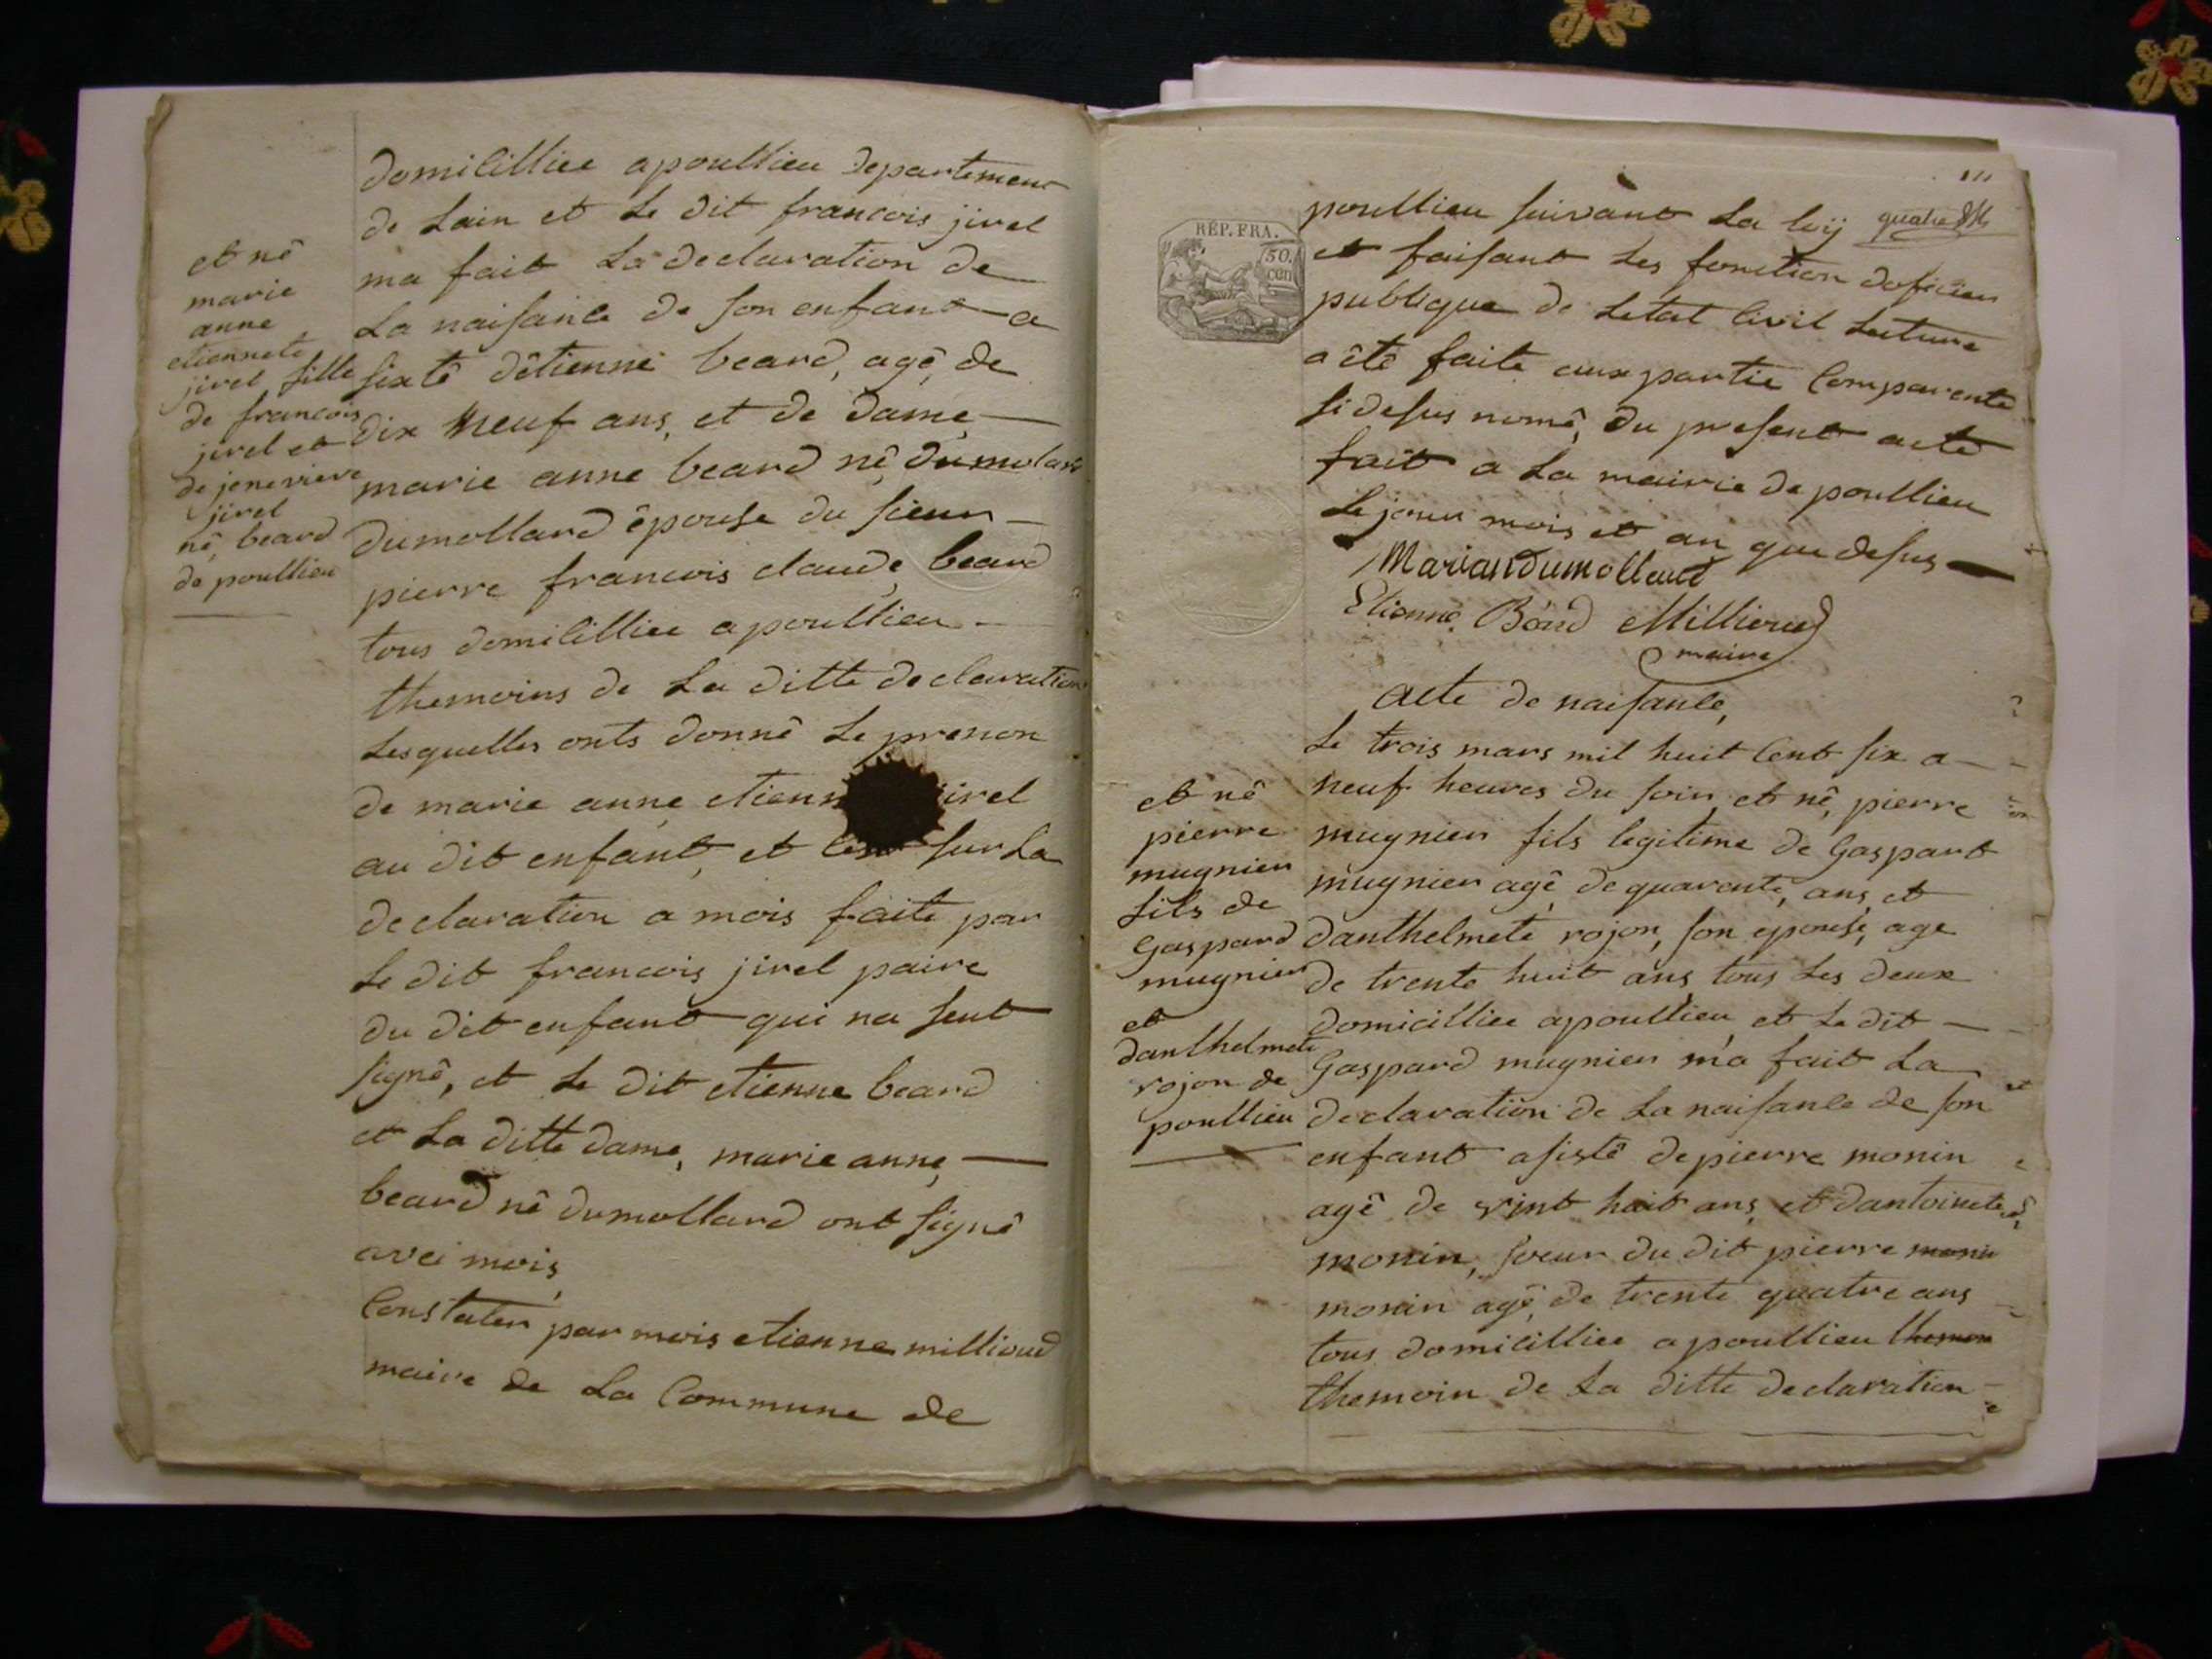 et nê
marie
anne
etiennete
jirel fille
de francois
jirel et
de jenevieve
jirel
nê, beard
de poullieu
domicilliee a poullieu departement
de Lain et Le dit francois jirel
ma fait La declaration de
La naisance de son enfant a
sixtê dêtienne beard, agê, de
dix neuf ans, et de dame
marie anne beard nê, dumolard
dumollard êpouse du sieur
pierre francois claude, beard
tous domicilliee a poullieu
themoins de La ditte declaration
Lesquelles onts donnê Le prenon
de marie anne etienn jirel
au dit enfant, et sur La
declaration a mois faite par
Le dit francois jirel paire
du dit enfant qui na seut
signê, et Le dit etienne beard
et La ditte dame, marie anne,
beard nê dumollard ont signê
avec mois,
Constater par mois etienne millioud
maire de La Commune de
111
quatre
RÉP. FRA.
50.
cen
poullieu suivant La loij
et faisant Les fonction doficier
publique de Letat Civil Lecture
a êtê faite aux partie Comparente
si desus nomê, du present acte
fait a La mairie de poullieu
Le jour mois et an que desus
Marian Dumollard
Etienne Béard Millioud
maire
acte de naisance,
Le trois mars mil huit Cent six a
neuf heures du soir et nê, pierre
mugnier fils legitime de Gaspart
mugnier agê, de quarente, ans, et
danthelmete rojon, son epouse, age
de trente huit ans tous Les deux
domicilliee a poullieu et Le dit
Gaspard mugnier m'a fait La
declaration de La naisance de son
enfant asistê de pierre monin
agê de vint huit ans et dantoinete
monin, soeur du dit pierre monin
monin agê, de trente quatre ans
tous domicilliee a poullieu themon
themoin de La ditte declaration
et nê
pierre
mugnier
fils de
Gaspard
mugnier
et
danthelmete
rojon de
poullieu